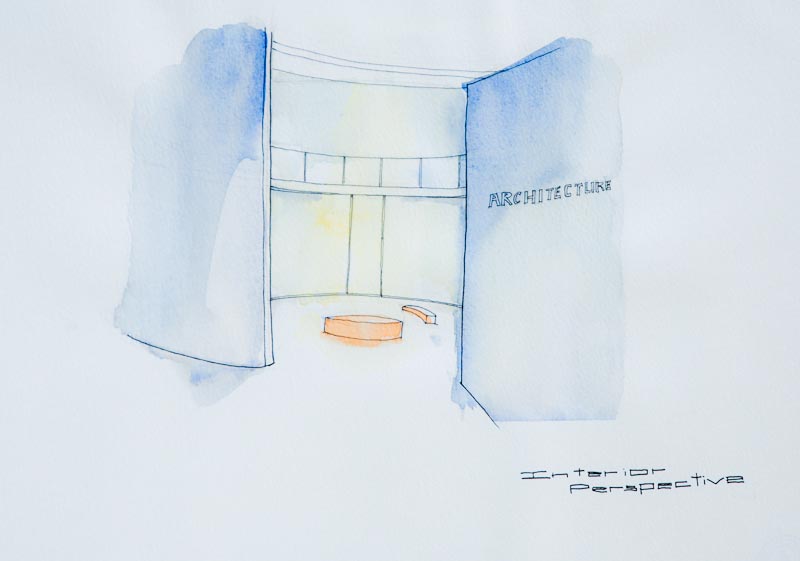 ARCHITECTURE
Interior
Perspective